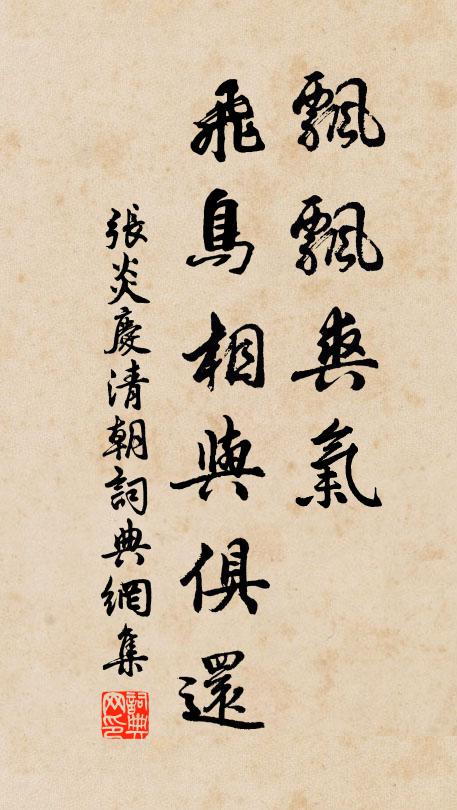 飄飄爽氣
飛鳥相與俱還
張炎慶清朝詞典網集
詞典网印